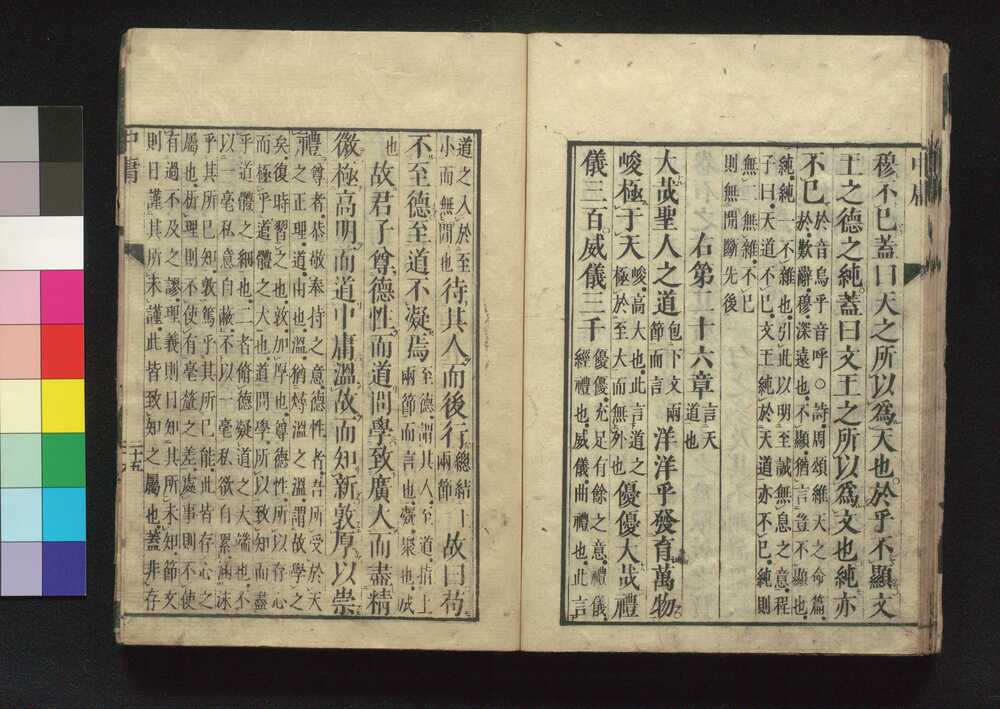 穆不已蓋曰天之所以爲天也於乎不顯文
王之德之純蓋曰文王之所以爲文也純亦
不已 於音烏乎音呼○詩周頌維天之命篇
於歎辭穆深遠也不顯猶言豈不顯也
純純一不雜也引此以明至誠無息之意程
子曰天道不已文王純於天道亦不已純則
無二無雜不已
則無間斷先後
右第二十六章 言天
道也
大哉聖人之道 包下文兩
節而言 洋洋乎發育萬物
峻極于天 峻高大也此言道之
極於至大而無外也 優優大哉禮
儀三百威儀三千 優優充足有餘之意禮儀
經禮也威儀曲禮也此言
道之入於至
小而無間也 待其人而後行 總結上
兩節 故曰苟
不至德至道不凝焉 至德謂其人至道指上
兩節而言也凝聚也成
也
故君子尊德性而道問學致廣大而盡精
微極高明而道中庸溫故而知新敦厚以崇
禮 尊者恭敬奉持之意德性者吾所受於天
之正理道由也溫猶燖溫之溫謂故學之
矣復時習之也敦加厚也尊德性所以存心
而極乎道體之大也道問學所以致知而盡
乎道體之細也二者脩德凝道之大端也不
以一毫私意自蔽不以一毫私欲自累涵泳
乎其所已知敦篤乎其所已能此皆存心之
屬也析理則不使有毫釐之差處事則不使
有過不及之謬理義則日知其所未知節文
則日謹其所未謹此皆致知之屬也蓋非存
中庸
二十五
中庸